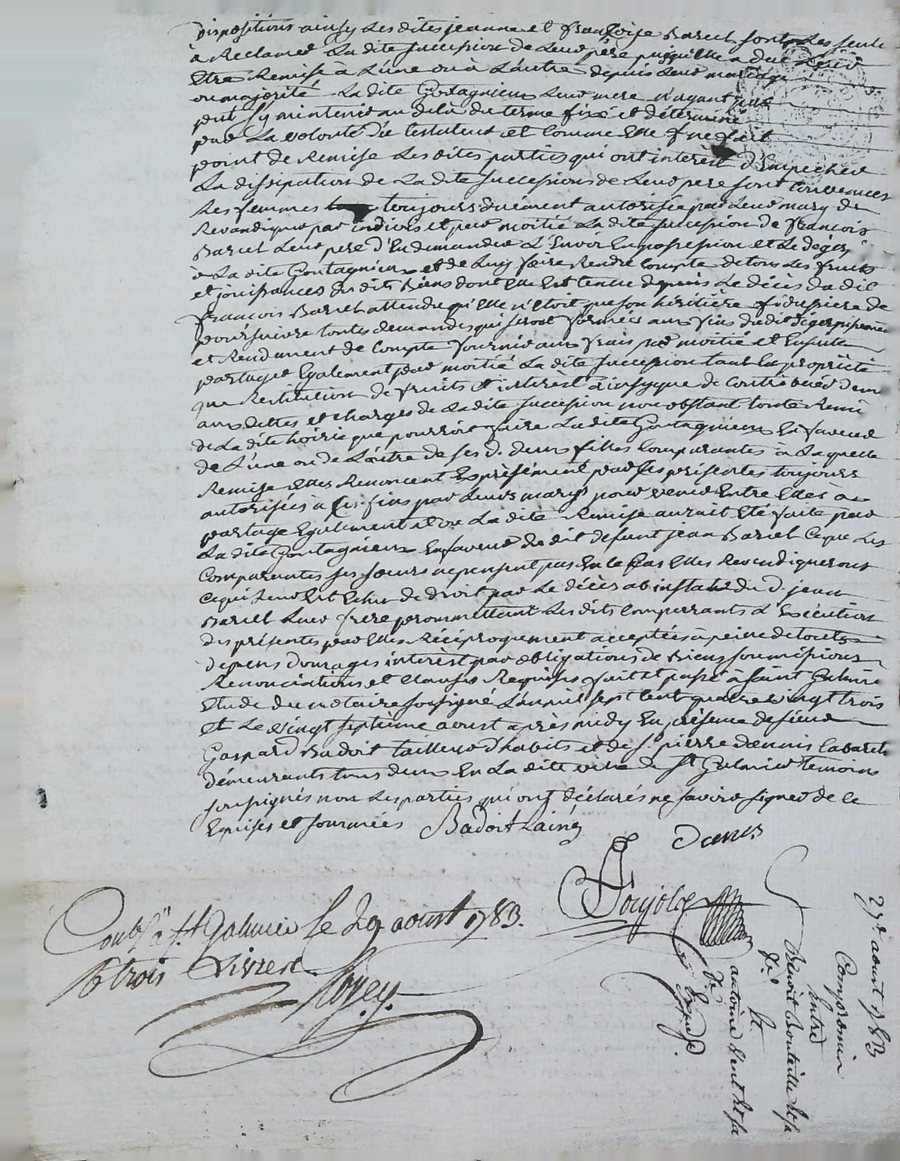 dispositions ainsy les dites jeanne et françoise Barcet sont les seule
à Reclamer la dite succession de leur pere puisqu'elle a due
Etre Remise à L'une ou à L'autre depuis leur mariage
ou majorité La dite Gontagnieux leur mere n'ayant pas
peut s'y maintenir au dela du terme fixé et déterminé
par La volonté du testateur et comme elle fait
point de Remise Les dites parties qui ont interest d'Empecher
La dissipation de La dite succession de leur pere sont convenues
Les femmes toujours duement autorisée par leur mary de
Revandiquer par indivis et par moitié La dite succession de françois
Barcet leur pere d'En demander L'Envoy En possession et Le
à La dite Gontagnieux et de Luy faire Rendre compte de tous les fruits
et jouissances du dit Biens dont elle Est tenue depuis Le décès du dit
françois Barcet attendu qu'Elle n'étoit que son héritière de
poursuivre toutes demandes qui seront formées aux fins du dit
et Rendement de compte fournir aux frais par moitié et Ensuite
partager Egalement par moitié La dite succession tant En propriété
que Restitution de fruits et interest ainsy que de contribuer
aux dettes et charges de La dite succession non obstant toute Remi
de La dite hoirie que pourroit faire La dite Gontagnieux En faveur
de L'une ou de L'autre de ses d. deux filles Comparantes à Laquelle
Remise elles Renoncent Expressément par ses présentes toujours
autorisées à ces fins par Leurs marys pour venir Entre Elles au
partage Egalement et ou La dite Remise auroit Eté faite par
La dite Gontagnieux En faveur du dit défunt jean Barcet Ce que Les
Comparantes ses sœurs ne pensent pas En le Cas Elles Revendiqueront
ce qui Leur Est Echu de droit par Le décès ab instat du d. jean
Barcet Leur frere promettant Les dits comparrants L'Exécution
des présentes par elles Réciproquement acceptées à peine de touts
depens domages interest par obligations de Biens soumissions
Renonciations et clauses Requises fait et passé à saint Galmier
Etude du notaire soussigné L'an mil sept cent quatre vingt trois
et Le vingt septieme aoust après midy En présence de sieur
Gaspard Badoit tailleur d'habits et de s.r pierre
démeurants tous deux En La dite ville de st Galmier temoins
soussignés non Les parties qui ont déclarés ne savoir signer de ce
Enquises et sommées Badoit Lainé
Poujolz
Contlé à St Galmier le 29 aoust 1783.
trois Livres
27e aoust 1783
Compromis
Entre
Benoit Bouteille et sa
fe.
Et
antoine et sa
fe.
Expédié